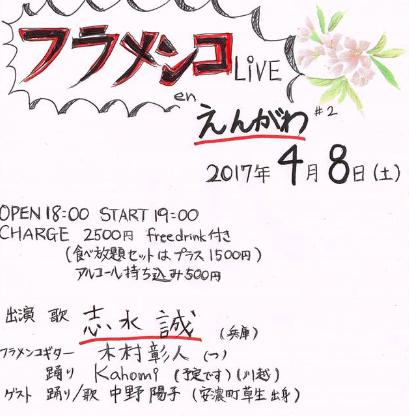 フラメンコLiVE
en
えんがわ #2
2017年 4月 8日(土)
OPEN 18:00 START 19:00
CHARGE 2500円 freedrink付き
(食べ放題セットはプラス1500円)
アルコール持ち込み500円
出演 歌 志水 誠 (兵庫)
フラメンコギター 木村彰人 (〃)
踊り Kahomi (予定です)(川越)
ゲスト 踊り/歌 中野陽子 (安濃町草生出身)